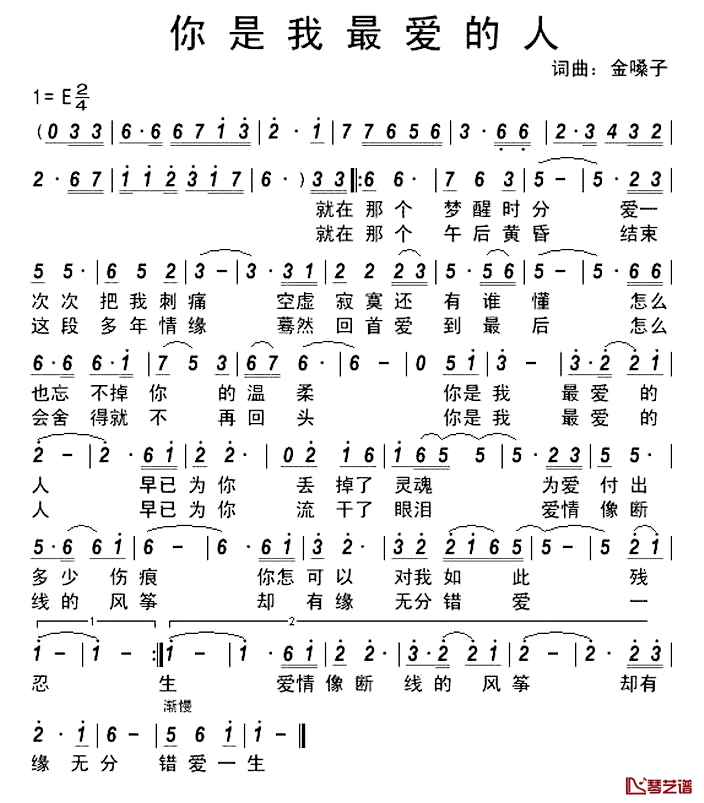 你是我最爱的人
词曲：金嗓子
1=E 2/4
(0 3 3 | 6·6 6 7 1 3 | 2· 1 | 7 7 6 5 6 | 3· 6 6 | 2·3 4 3 2 |
2· 6 7 | 1 1 2 3 1 7 | 6·) 3 3 |: 6 6· | 7 6 3 | 5 − | 5· 2 3 |
就在那个 梦醒时分 爱一
就在那个 午后黄昏 结束
5 5· | 6 5 2 | 3 − | 3· 3 1 | 2 2 2 3 | 5· 5 6 | 5 − | 5· 6 6 |
次次 把我刺痛 空虚 寂寞还 有谁懂 怎么
这段 多年情缘 蓦然 回首爱 到最后 怎么
6·6 6·1 | 7 5 3 | 6 7 6· | 6 − | 0 5 1 | 3 − | 3·2 2 1 |
也忘 不掉你 的温柔 你是我 最爱的
会舍 得就不 再回头 你是我 最爱的
2 − | 2· 6 1 | 2 2· | 0 2 1 6 | 1 6 5 5 | 5· 2 3 | 5 5· |
人 早已为你 丢掉了灵魂 为爱付出
人 早已为你 流干了眼泪 爱情像断
5·6 6 1 | 6 − | 6· 6 1 | 3 2 | 3 2 | 2 1 6 5 | 5 2 1 |
多少伤痕 你怎可以 对我如此 残
线的风筝 却有缘 无分错爱 一
1 2
1 − | 1 − :| 1 − | 1· 6 1 | 2 2 | 3·2 2 1 | 2 − | 2· 2 3 |
忍 生 爱情像断 线的风筝 却有
渐慢
2· 1 | 6 − | 5 6 1 | 1 − | 1 − ‖
缘无分 错爱一生
琴艺谱